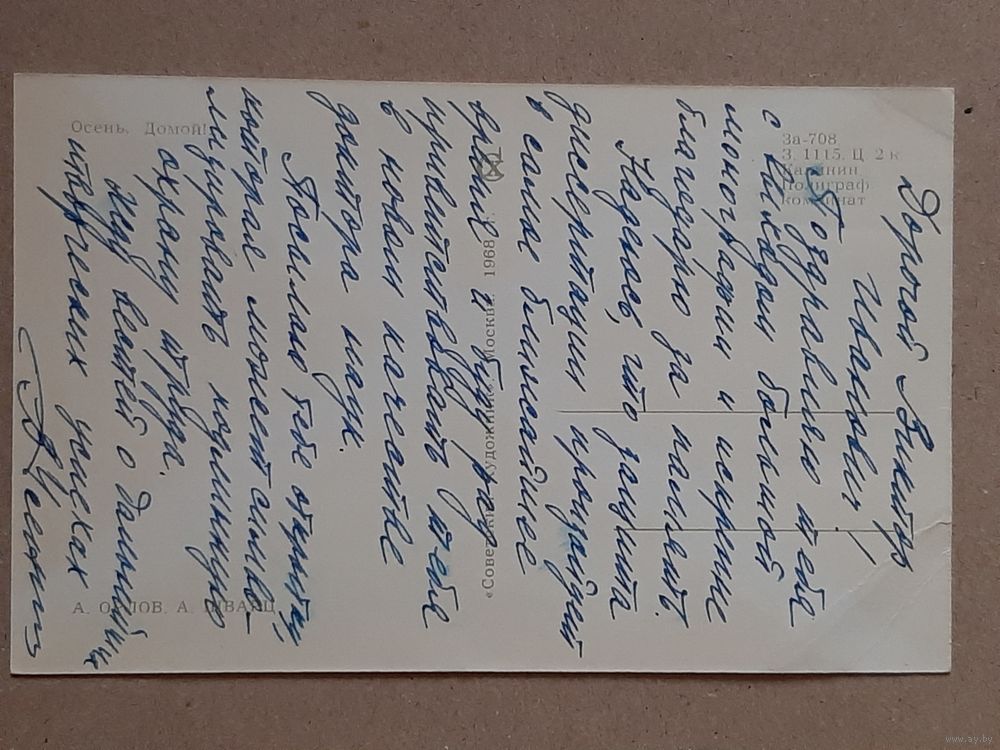 Дорогой Виктор
Иванович!
Поздравляю тебя
с выходом большой
монографии и искренне
благодарю за память.
Надеюсь, что защита
диссертации пройдет
в самое ближайшее
время и буду рад
приветствовать тебя
в новом качестве
доктора наук.
Посылаю тебе открытку,
которая может симво-
лизировать подлинную
охрану труда.
Жду вестей о дальнейших
творческих успехах
Осень. Домой!
А. ОРЛОВ, А. ШВАРЦ
«Советский художник». Москва. 1968
За-708
З. 1115. Ц. 2 к
Калинин
Полиграф
комбинат
www.ay.by